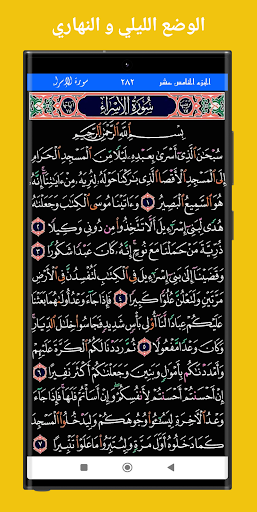 الوضع الليلي و النهاري
الجزء الخامس عشر ٢٨٢ سورة الإسراء
سُورَةُ الْإِسْرَاءِ
بِسْمِ اللَّهِ الرَّحْمَٰنِ الرَّحِيمِ
سُبْحَٰنَ الَّذِي أَسْرَىٰ بِعَبْدِهِ لَيْلًا مِنَ الْمَسْجِدِ الْحَرَامِ
إِلَى الْمَسْجِدِ الْأَقْصَا الَّذِي بَٰرَكْنَا حَوْلَهُ لِنُرِيَهُ مِنْ ءَايَٰتِنَا إِنَّهُ
هُوَ السَّمِيعُ الْبَصِيرُ ١ وَءَاتَيْنَا مُوسَى الْكِتَٰبَ وَجَعَلْنَٰهُ
هُدًى لِبَنِي إِسْرَٰٓءِيلَ أَلَّا تَتَّخِذُوا مِنْ دُونِي وَكِيلًا ٢
ذُرِّيَّةَ مَنْ حَمَلْنَا مَعَ نُوحٍ إِنَّهُ كَانَ عَبْدًا شَكُورًا ٣
وَقَضَيْنَا إِلَىٰ بَنِي إِسْرَٰٓءِيلَ فِي الْكِتَٰبِ لَتُفْسِدُنَّ فِي الْأَرْضِ
مَرَّتَيْنِ وَلَتَعْلُنَّ عُلُوًّا كَبِيرًا ٤ فَإِذَا جَاءَ وَعْدُ أُولَىٰهُمَا بَعَثْنَا
عَلَيْكُمْ عِبَادًا لَنَا أُولِي بَأْسٍ شَدِيدٍ فَجَاسُوا خِلَٰلَ الدِّيَارِ
وَكَانَ وَعْدًا مَفْعُولًا ٥ ثُمَّ رَدَدْنَا لَكُمُ الْكَرَّةَ عَلَيْهِمْ
وَأَمْدَدْنَٰكُمْ بِأَمْوَٰلٍ وَبَنِينَ وَجَعَلْنَٰكُمْ أَكْثَرَ نَفِيرًا ٦
إِنْ أَحْسَنْتُمْ أَحْسَنْتُمْ لِأَنْفُسِكُمْ وَإِنْ أَسَأْتُمْ فَلَهَا فَإِذَا جَاءَ
وَعْدُ الْءَاخِرَةِ لِيَسُـُٔوا وُجُوهَكُمْ وَلِيَدْخُلُوا الْمَسْجِدَ
كَمَا دَخَلُوهُ أَوَّلَ مَرَّةٍ وَلِيُتَبِّرُوا مَا عَلَوْا تَتْبِيرًا ٧